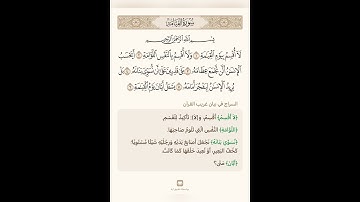 سُورَةُ القِيَامَةِ
بِسْمِ اللَّهِ الرَّحْمَٰنِ الرَّحِيمِ
لَا أُقْسِمُ بِيَوْمِ الْقِيَامَةِ ۝ وَلَا أُقْسِمُ بِالنَّفْسِ اللَّوَّامَةِ ۝ أَيَحْسَبُ
الْإِنسَانُ أَلَّن نَّجْمَعَ عِظَامَهُ ۝ بَلَىٰ قَادِرِينَ عَلَىٰ أَن نُّسَوِّيَ بَنَانَهُ ۝ بَلْ
يُرِيدُ الْإِنسَانُ لِيَفْجُرَ أَمَامَهُ ۝ يَسْأَلُ أَيَّانَ يَوْمُ الْقِيَامَةِ ۝
السراج في بيان غريب القرآن
﴿لَا أُقْسِمُ﴾ أُقْسِمُ، وَ(لَا): تَأْكِيدٌ لِلْقَسَمِ.
﴿اللَّوَّامَةِ﴾ النَّفْسِ الَّتِي تَلُومُ صَاحِبَهَا.
﴿نُسَوِّيَ بَنَانَهُ﴾ نَجْعَلَ أَصَابِعَ يَدَيْهِ وَرِجْلَيْهِ شَيْئًا مُسْتَوِيًا
كَخُفِّ الْبَعِيرِ، أَوْ نُعِيدَ خَلْقَهَا كَمَا كَانَتْ.
﴿أَيَّانَ﴾ مَتَى؟